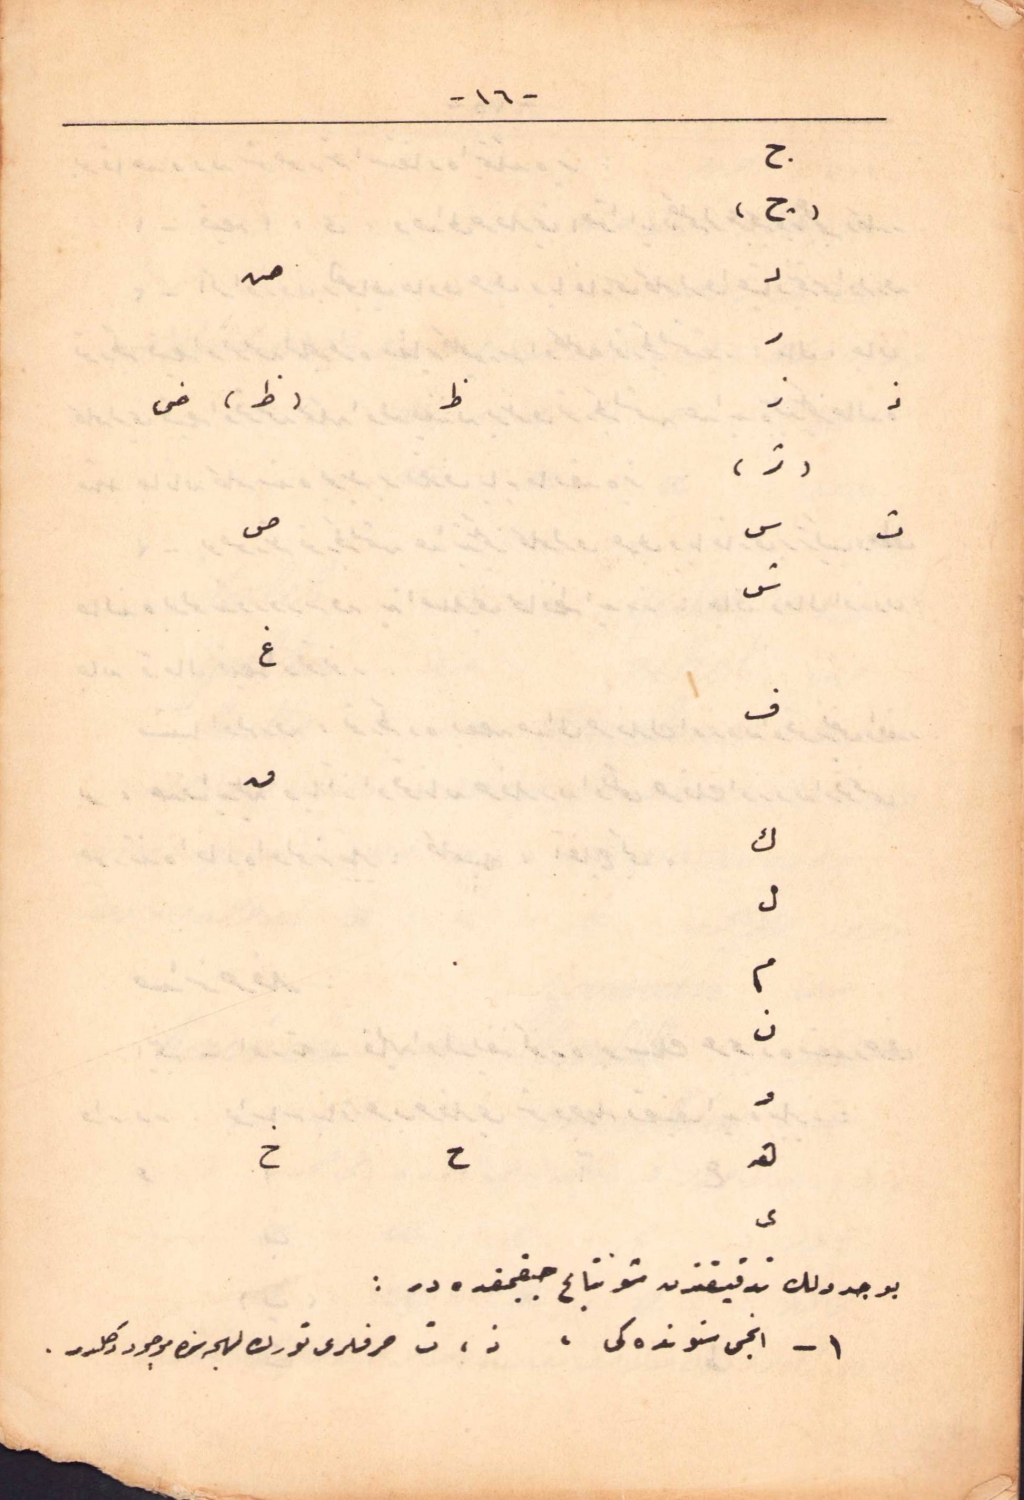 - ١٦ -
ج
( چ )
د ض
ر
ذ ز ظ ( ظ ) ض
( ژ )
ث س ص
ش
غ
ف
ق
ك
ل
م
ن
و
ه ح خ
ى
بو جدولك تدقيقندن شو نتايج چيقمقده در :
١ - ستونده كى ، ذ ، ث حرفلرى تورك لهجه سنده موجود دكلدر .